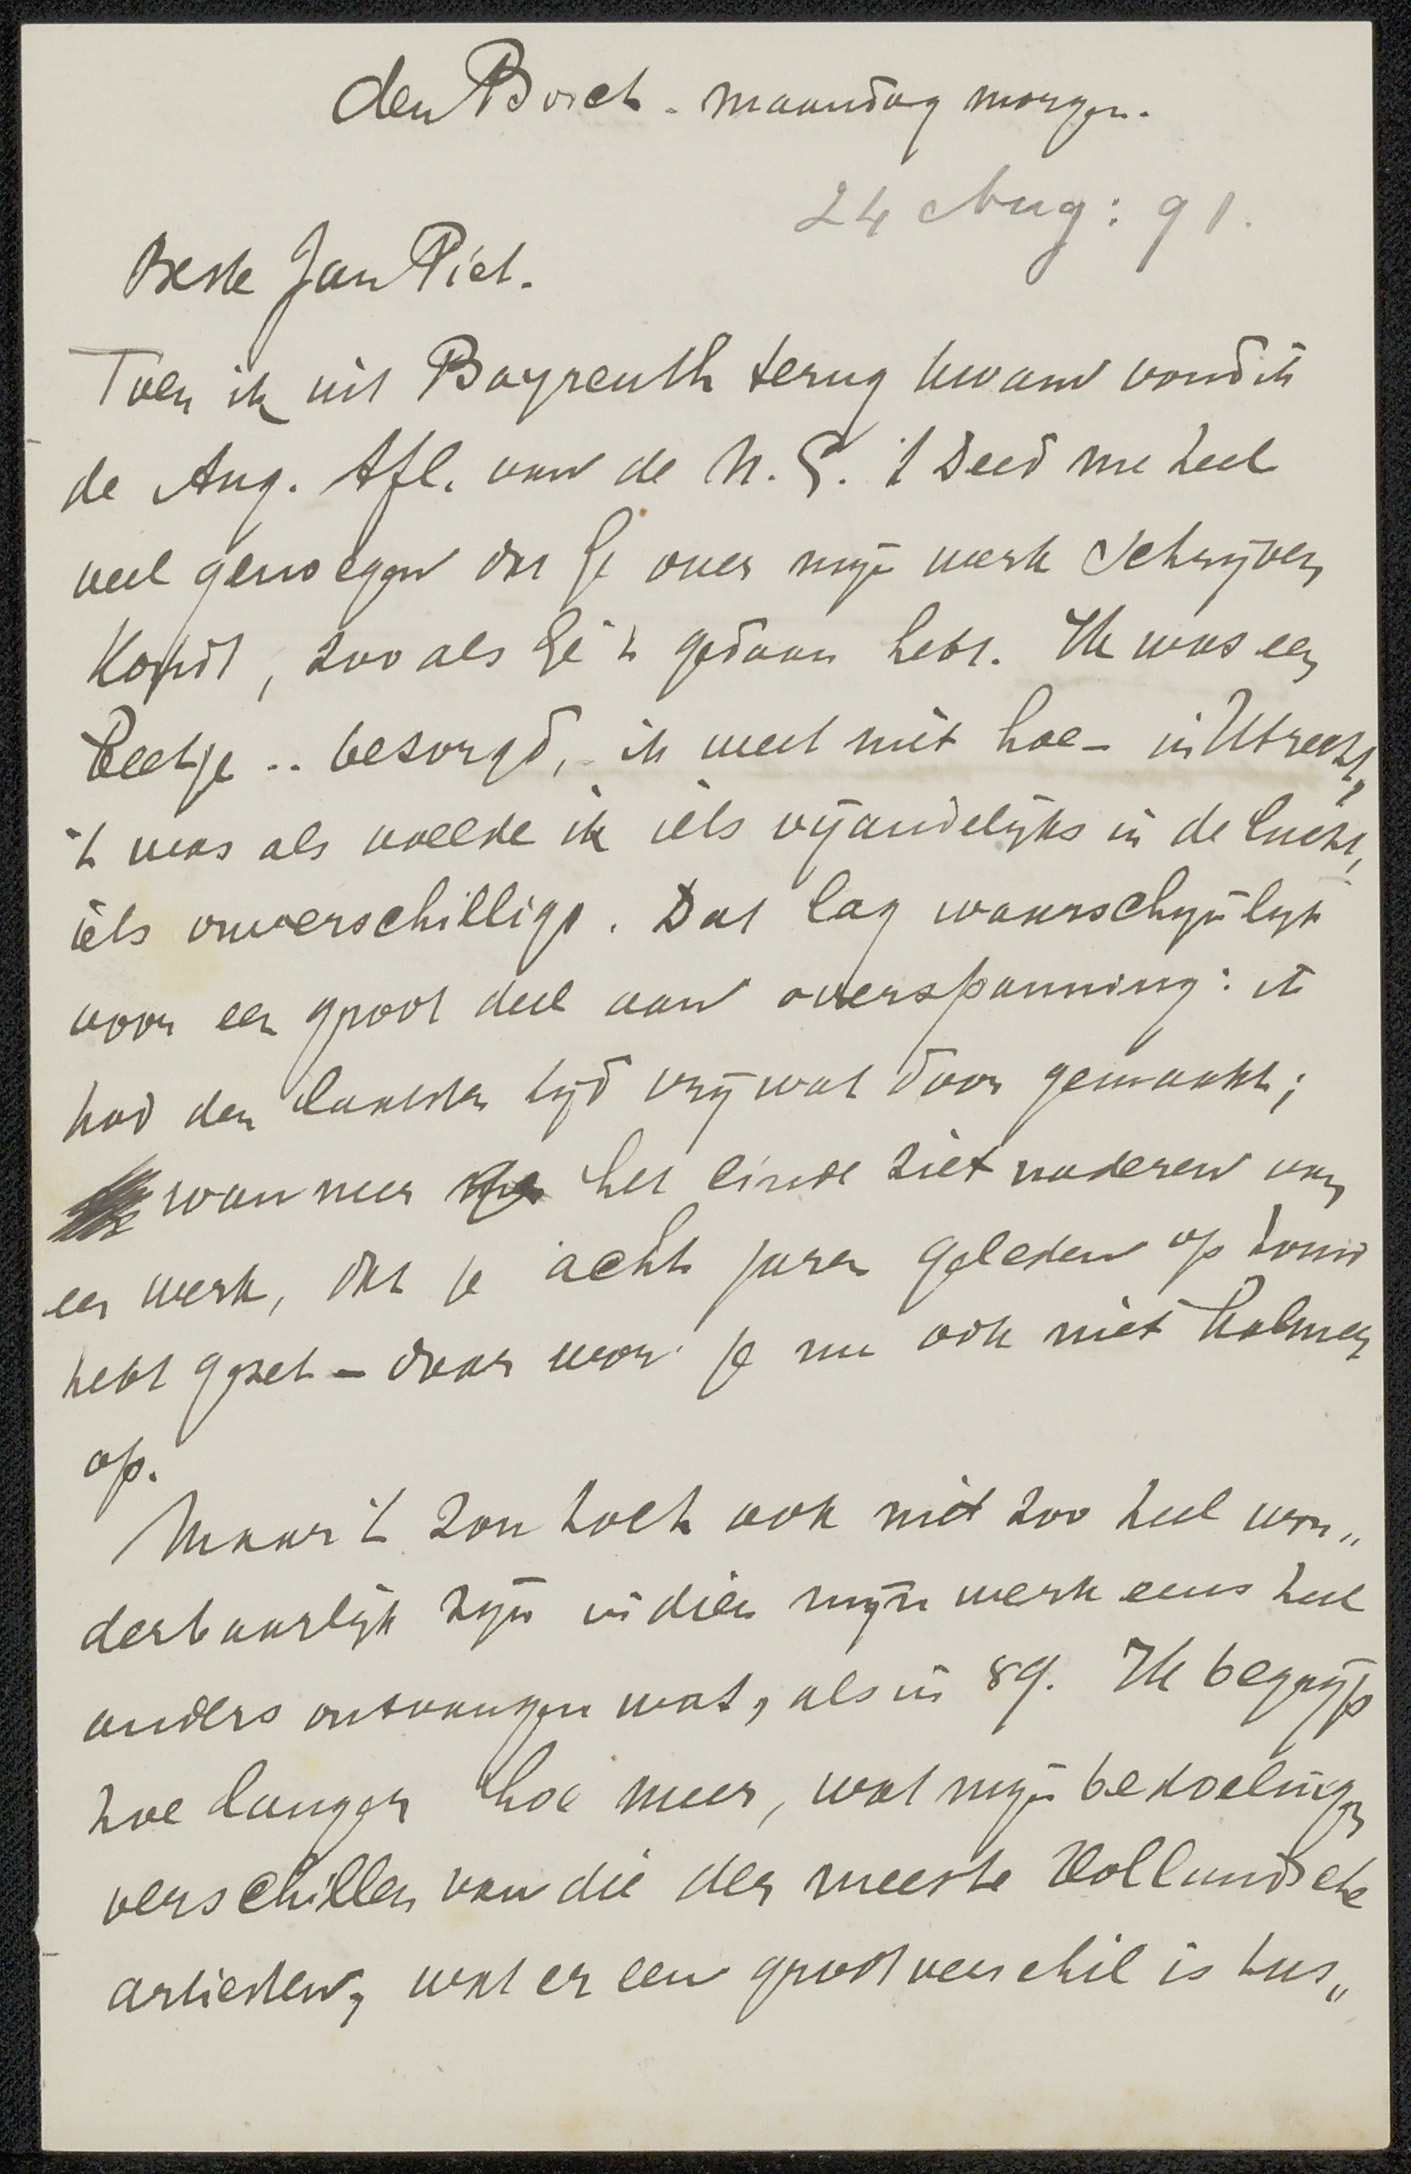 den Bosch - maandag morgen.
24 Aug: 91.
Beste Jan Piet.
Toen ik uit Bayreuth terug kwam vond ik
de Aug. Afl. van de N. G. 't deed me heel
veel genoegen dat Ge over mijn werk schrijven
kondt, zoo als Ge 't gedaan hebt. Ik was een
beetje .. bezorgd, - ik weet niet hoe - in Utrecht,
't was als voelde ik iets vijandelijks in de lucht,
iets onverschilligs. Dat lag waarschijnlijk
voor een groot deel aan overspanning: ik
had den laatsten tijd vrij wat door gemaakt;
wanneer het einde ziet naderen van
een werk, dat je acht jaren geleden op touw
hebt gezet - daar wor' je nu ook niet kalmer
op.
Maar 't zou toch ook niet zoo heel won„
derbaarlijk zijn indien mijn werk eens heel
anders ontvangen wat, als in 89. Ik begrijp
hoe langer hoe meer, wat mijn bedoelingen
verschillen van die der meeste Hollandsche
artiesten, wat er een groot verschil is tus„